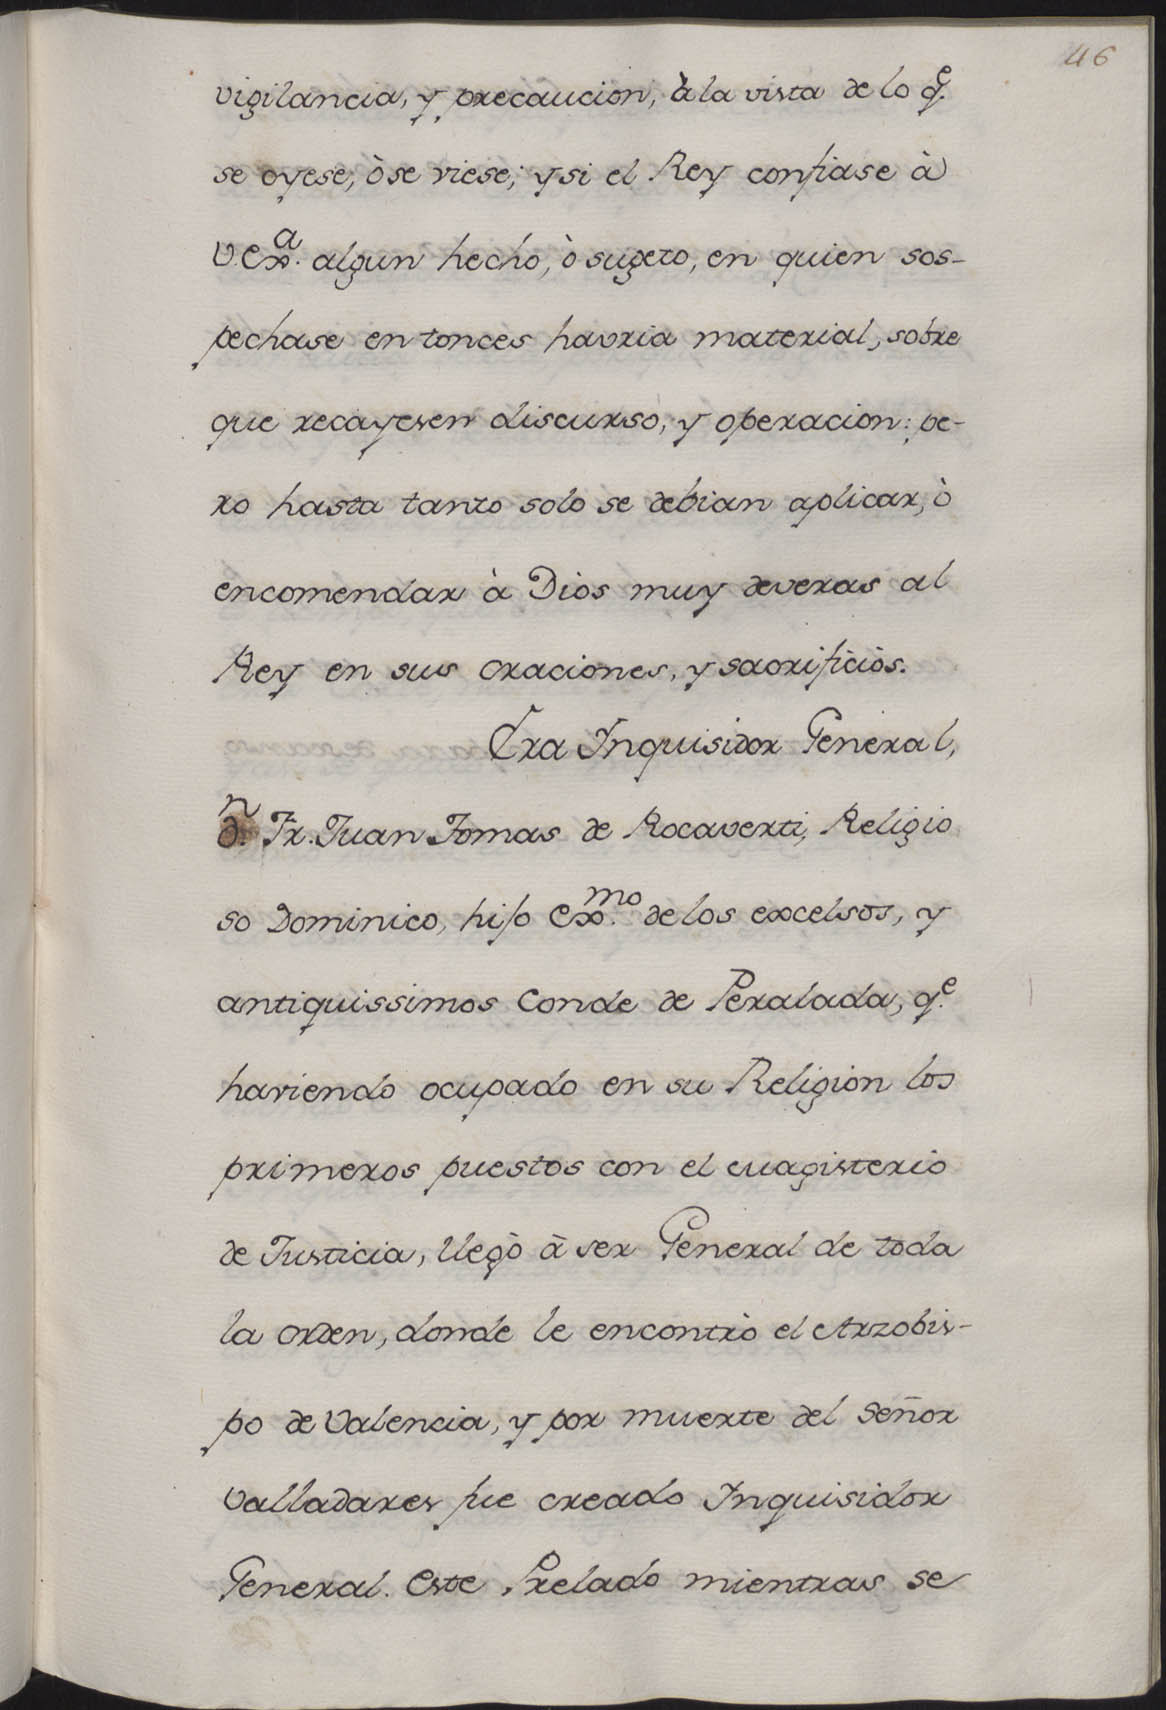 46
vigilancia, y precaucion, à la vista de lo q.e
se oyese, ò se viese; y si el Rey confiase à
V. Ex.a algun hecho, ò sugeto, en quien sos-
pechase entonces havria material, sobre
que recayesen discurso, y operacion: pe-
ro hasta tanto solo se debian aplicar, ò
encomendar à Dios muy deveras al
Rey en sus oraciones, y sacrificios.
Era Inquisidor General,
D.n Fr. Juan Tomas de Rocaverti, Religio
so Dominico, hijo Ex.mo de los excelsos, y
antiquissimos Conde de Peralada, q.e
haviendo ocupado en su Religion los
primeros puestos con el Magisterio
de Justicia, llegò à ser General de toda
la Orden, donde le encontrò el Arzobis-
po de Valencia, y por muerte del Señor
Valladares fue creado Inquisidor
General. Este Prelado mientras se